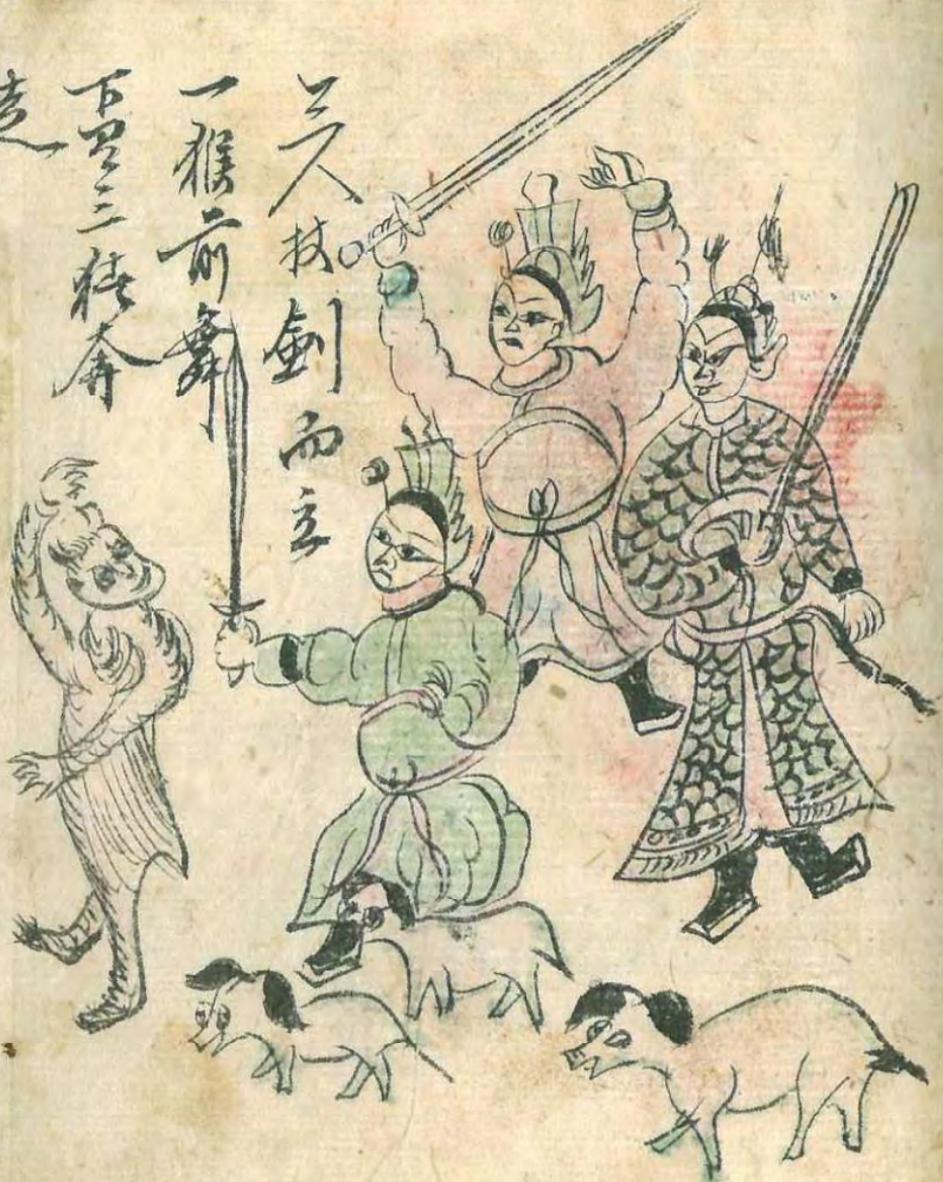 上三人杖劍而立
一猴前舞
下畫三猪奔
走